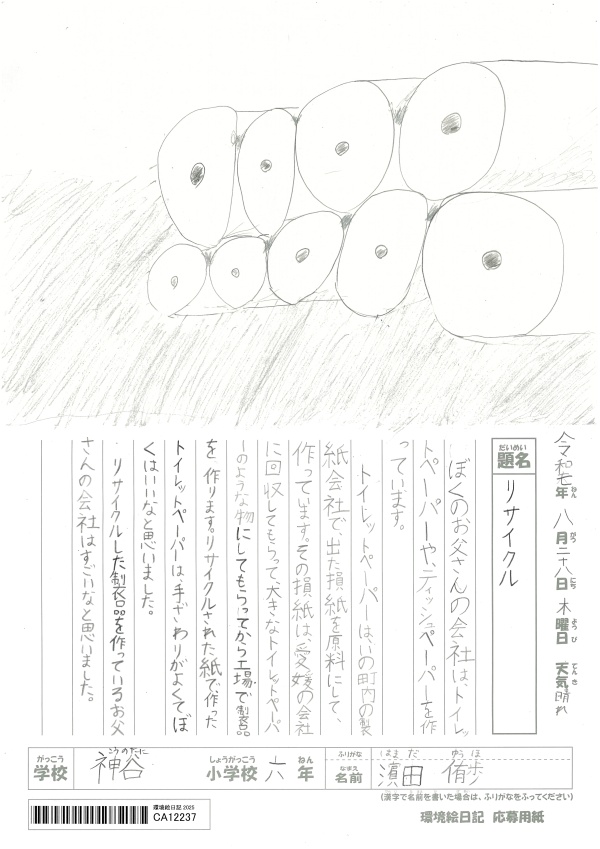 令和七年八月二十八日木曜日 天気晴れ
ねん がつ にち ようび てんき
だいめい
題名 リサイクル
ぼくのお父さんの会社は、トイレッ
トペーパーや、ティッシュペーパーを作
っています。
トイレットペーパーは、いの町内の製
紙会社で、出た損紙を原料にして、
作っています。その損紙は、愛媛の会社
に回収してもらって、大きなトイレットペーパ
ーのような物にしてもらってから工場で製品
を作ります。リサイクルされた紙で作った
トイレットペーパーは、手ざわりがよくてぼ
くはいいなと思いました。
リサイクルした製品を作っているお父
さんの会社はすごいなと思いました。
がっこう こうのたに しょうがっこう ねん ふりがな はまだ ゆうほ
学校 神谷 小学校 六年 なまえ 名前 濵田 侑歩
(漢字で名前を書いた場合は、ふりがなをふってください)
環境絵日記 2025
CA12237
環境絵日記 応募用紙